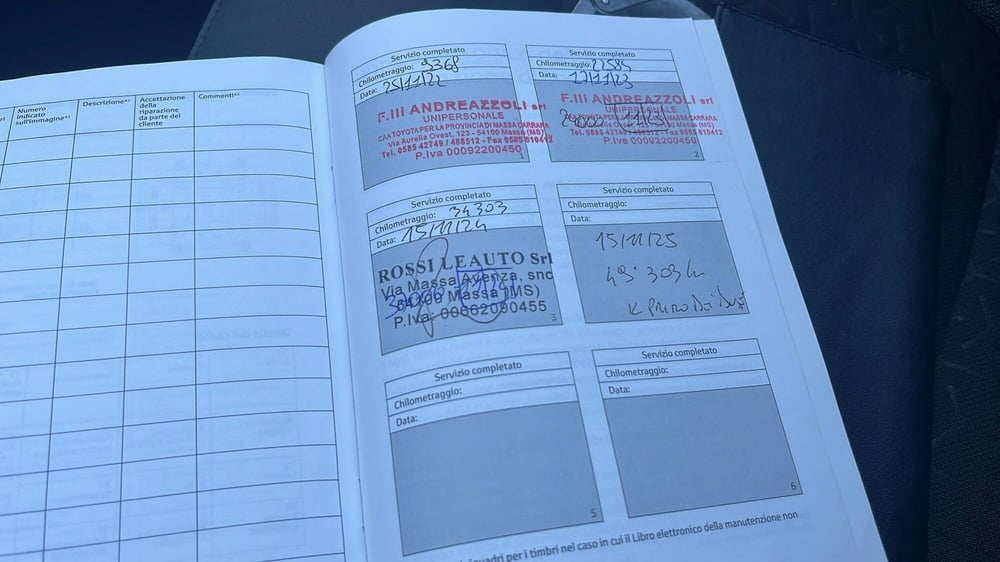 Numero
indicato
sull'immagine*¹
Descrizione*¹
Accettazione
della
riparazione
da parte del
cliente
Commenti*¹
Servizio completato
Chilometraggio: 9368
Data: 25/11/22
F.lli ANDREAZZOLI srl
UNIPERSONALE
CAA TOYOTA PER LA PROVINCIA DI MASSA CARRARA
Via Aurelia Ovest, 123 - 54100 Massa (MS)
Tel. 0585 42749 / 488512 - Fax 0585 810412
P.Iva 00092200450
1
Servizio completato
Chilometraggio: 22585
Data: 17/11/23
F.lli ANDREAZZOLI srl
UNIPERSONALE
TOYOTA PER LA PROVINCIA DI MASSA CARRARA
Via Aurelia Ovest, Massa (MS)
Tel. 0585 42749 / 488512 - Fax 0585 810412
P.Iva 00092200450
2
Servizio completato
Chilometraggio: 34303
Data: 15/11/24
ROSSI LEAUTO Srl
Via Massa Avenza, snc
54100 Massa (MS)
P.Iva: 00662090455
3
Servizio completato
Chilometraggio:
Data:
15/11/25
49.303 km
Servizio completato
Chilometraggio:
Data:
5
Servizio completato
Chilometraggio:
Data:
6
quadri per i timbri nel caso in cui il Libro elettronico della manutenzione non